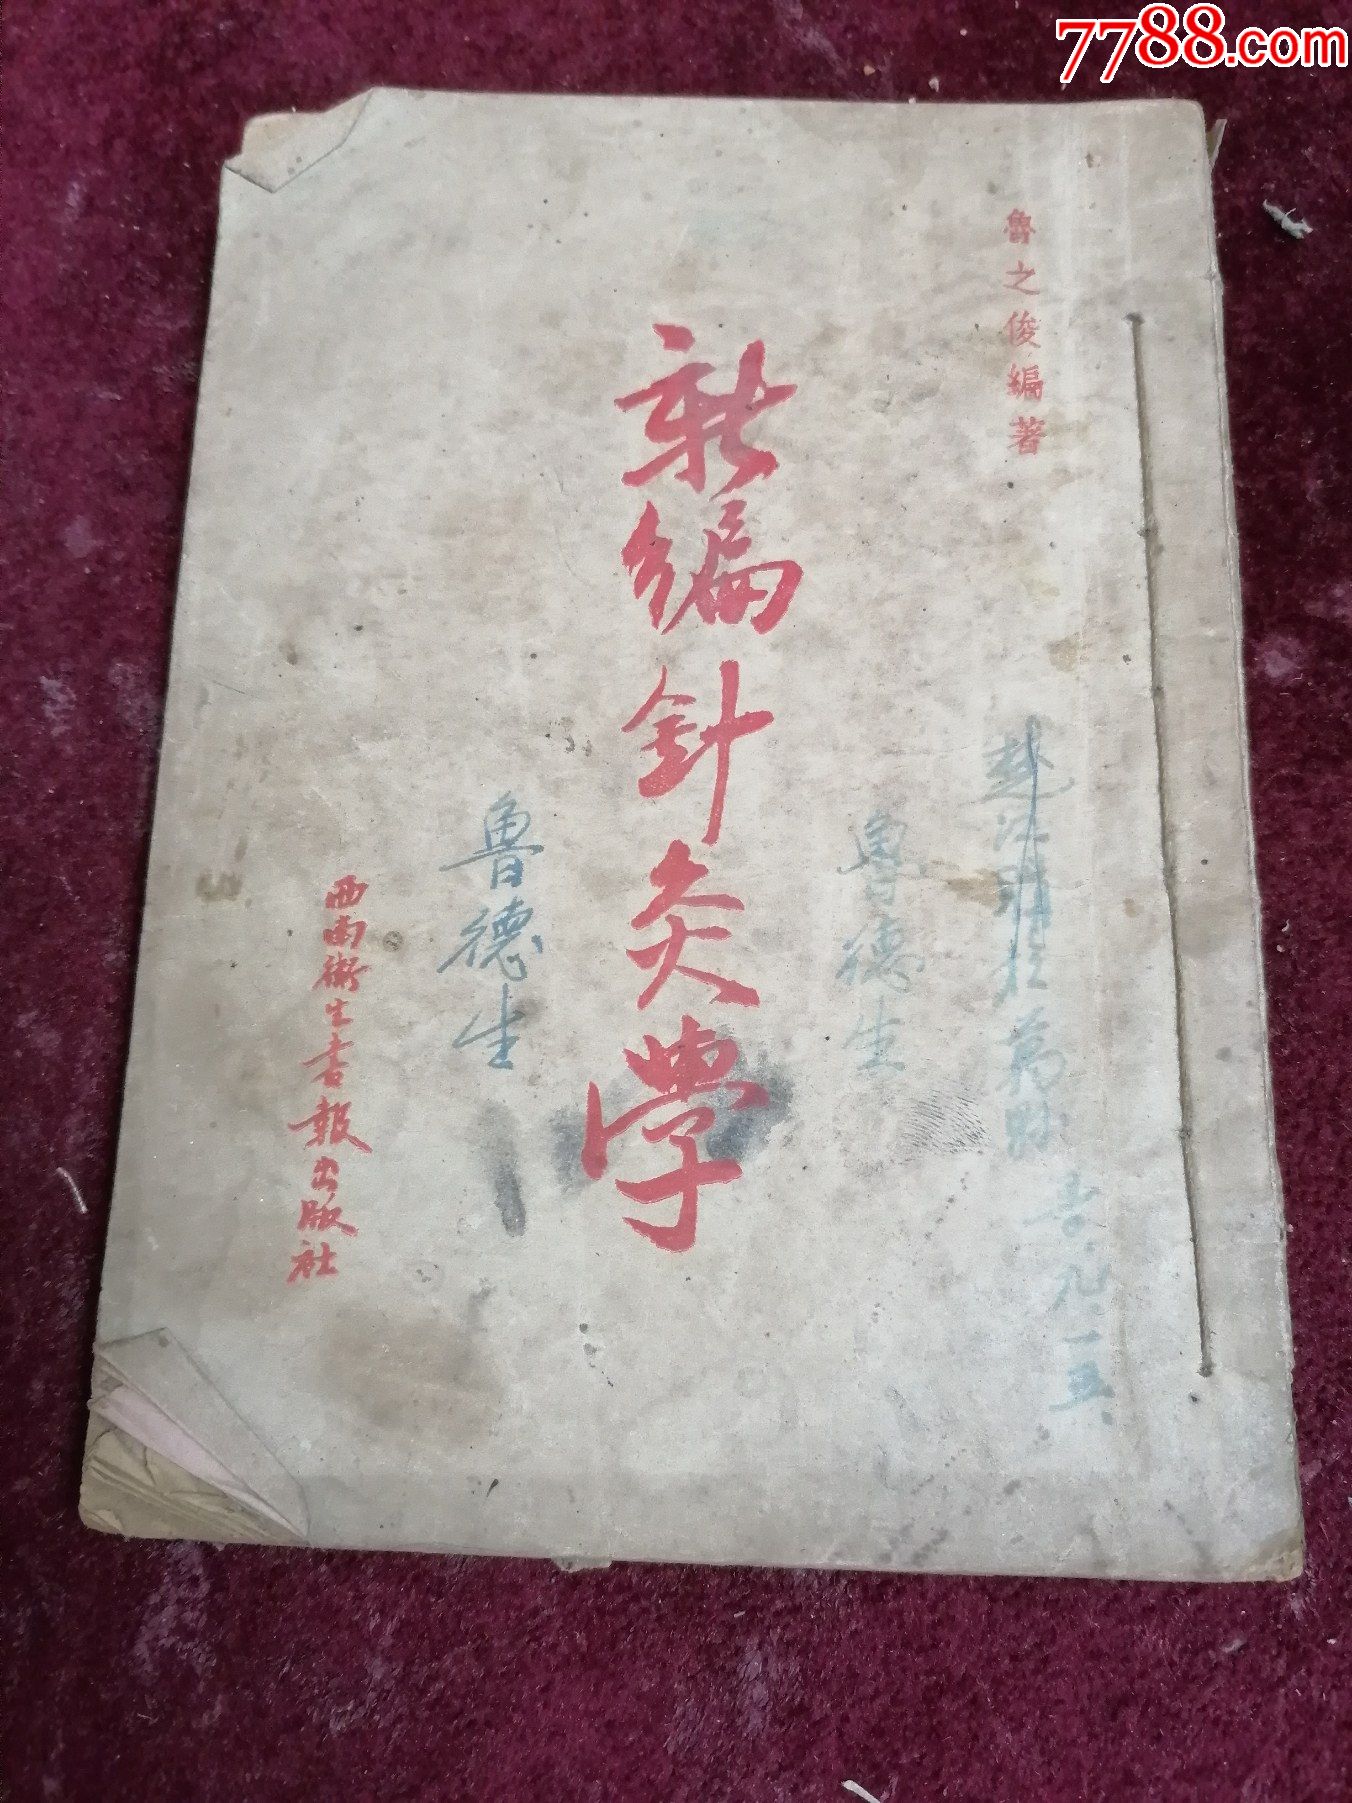 7788.com
魯之俊編著
新編針灸学
魯德生
魯德生
西南衛生书報出版社